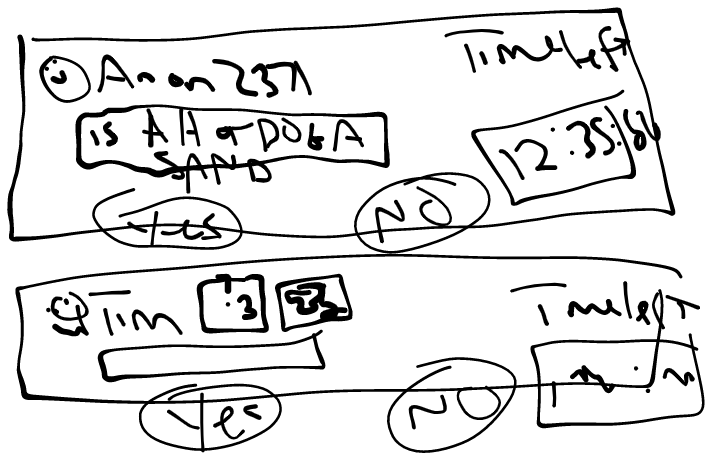 Anon 2371
Time left
is A HotDOG A
SAND
12:35:
Yes
NO
Tim
:3
Time left
Yes
NO